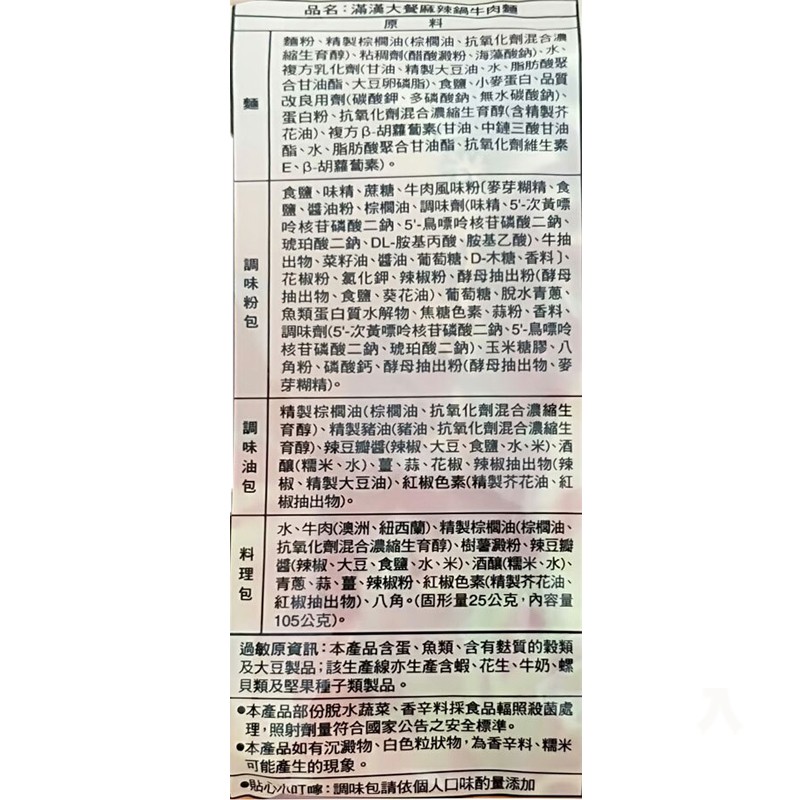 品名：滿漢大餐麻辣鍋牛肉麵
原料
麵
麵粉、精製棕櫚油(棕櫚油、抗氧化劑混合濃
縮生育醇)、粘稠劑(醋酸澱粉、海藻酸鈉)、水、
複方乳化劑(甘油、精製大豆油、水、脂肪酸聚
合甘油酯、大豆卵磷脂)、食鹽、小麥蛋白、品質
改良用劑(碳酸鉀、多磷酸鈉、無水碳酸鈉)、
蛋白粉、抗氧化劑混合濃縮生育醇(含精製芥
花油)、複方β-胡蘿蔔素(甘油、中鏈三酸甘油
酯、水、脂肪酸聚合甘油酯、抗氧化劑維生素
E、β-胡蘿蔔素)。
調味粉包
食鹽、味精、蔗糖、牛肉風味粉〔麥芽糊精、食
鹽、醬油粉、棕櫚油、調味劑(味精、5'-次黃嘌
呤核苷磷酸二鈉、5'-鳥嘌呤核苷磷酸二鈉、
琥珀酸二鈉、DL-胺基丙酸、胺基乙酸)、牛抽
出物、菜籽油、醬油、葡萄糖、D-木糖、香料〕、
花椒粉、氯化鉀、辣椒粉、酵母抽出粉(酵母
抽出物、食鹽、葵花油)、葡萄糖、脫水青蔥、
魚類蛋白質水解物、焦糖色素、蒜粉、香料、
調味劑(5'-次黃嘌呤核苷磷酸二鈉、5'-鳥嘌呤
核苷磷酸二鈉、琥珀酸二鈉)、玉米糖膠、八
角粉、磷酸鈣、酵母抽出粉(酵母抽出物、麥
芽糊精)。
調味油包
精製棕櫚油(棕櫚油、抗氧化劑混合濃縮生
育醇)、精製豬油(豬油、抗氧化劑混合濃縮生
育醇)、辣豆瓣醬(辣椒、大豆、食鹽、水、米)、酒
釀(糯米、水)、薑、蒜、花椒、辣椒抽出物(辣
椒、精製大豆油)、紅椒色素(精製芥花油、紅
椒抽出物)。
料理包
水、牛肉(澳洲、紐西蘭)、精製棕櫚油(棕櫚油、
抗氧化劑混合濃縮生育醇)、樹薯澱粉、辣豆瓣
醬(辣椒、大豆、食鹽、水、米)、酒釀(糯米、水)、
青蔥、蒜、薑、辣椒粉、紅椒色素(精製芥花油、
紅椒抽出物)、八角。(固形量25公克，內容量
105公克)。
過敏原資訊：本產品含蛋、魚類、含有麩質的穀類
及大豆製品；該生產線亦生產含蝦、花生、牛奶、螺
貝類及堅果種子類製品。
●本產品部份脫水蔬菜、香辛料採食品輻照殺菌處
理，照射劑量符合國家公告之安全標準。
●本產品如有沉澱物、白色粒狀物，為香辛料、糯米
可能產生的現象。
●貼心小叮嚀：調味包請依個人口味酌量添加